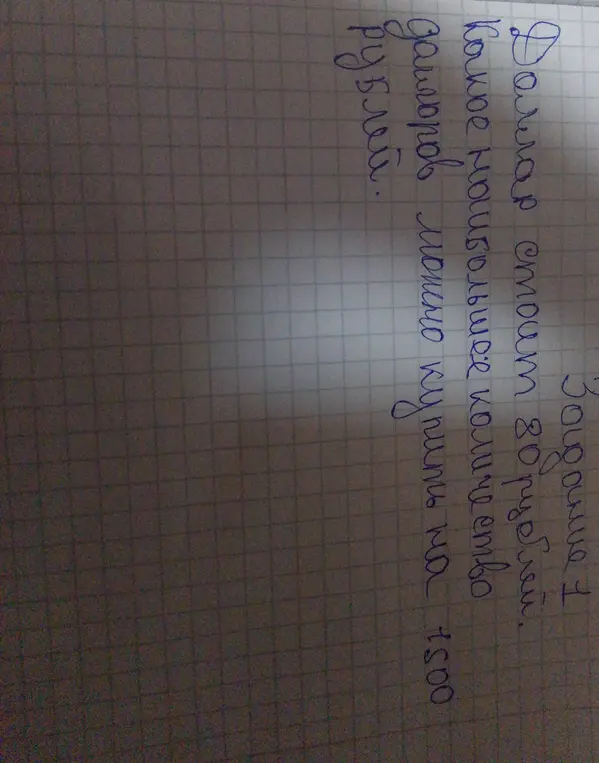 Задание 1
Доллар стоит 80 рублей.
Какое наибольшее количество
долларов можно купить на 7500
рублей.